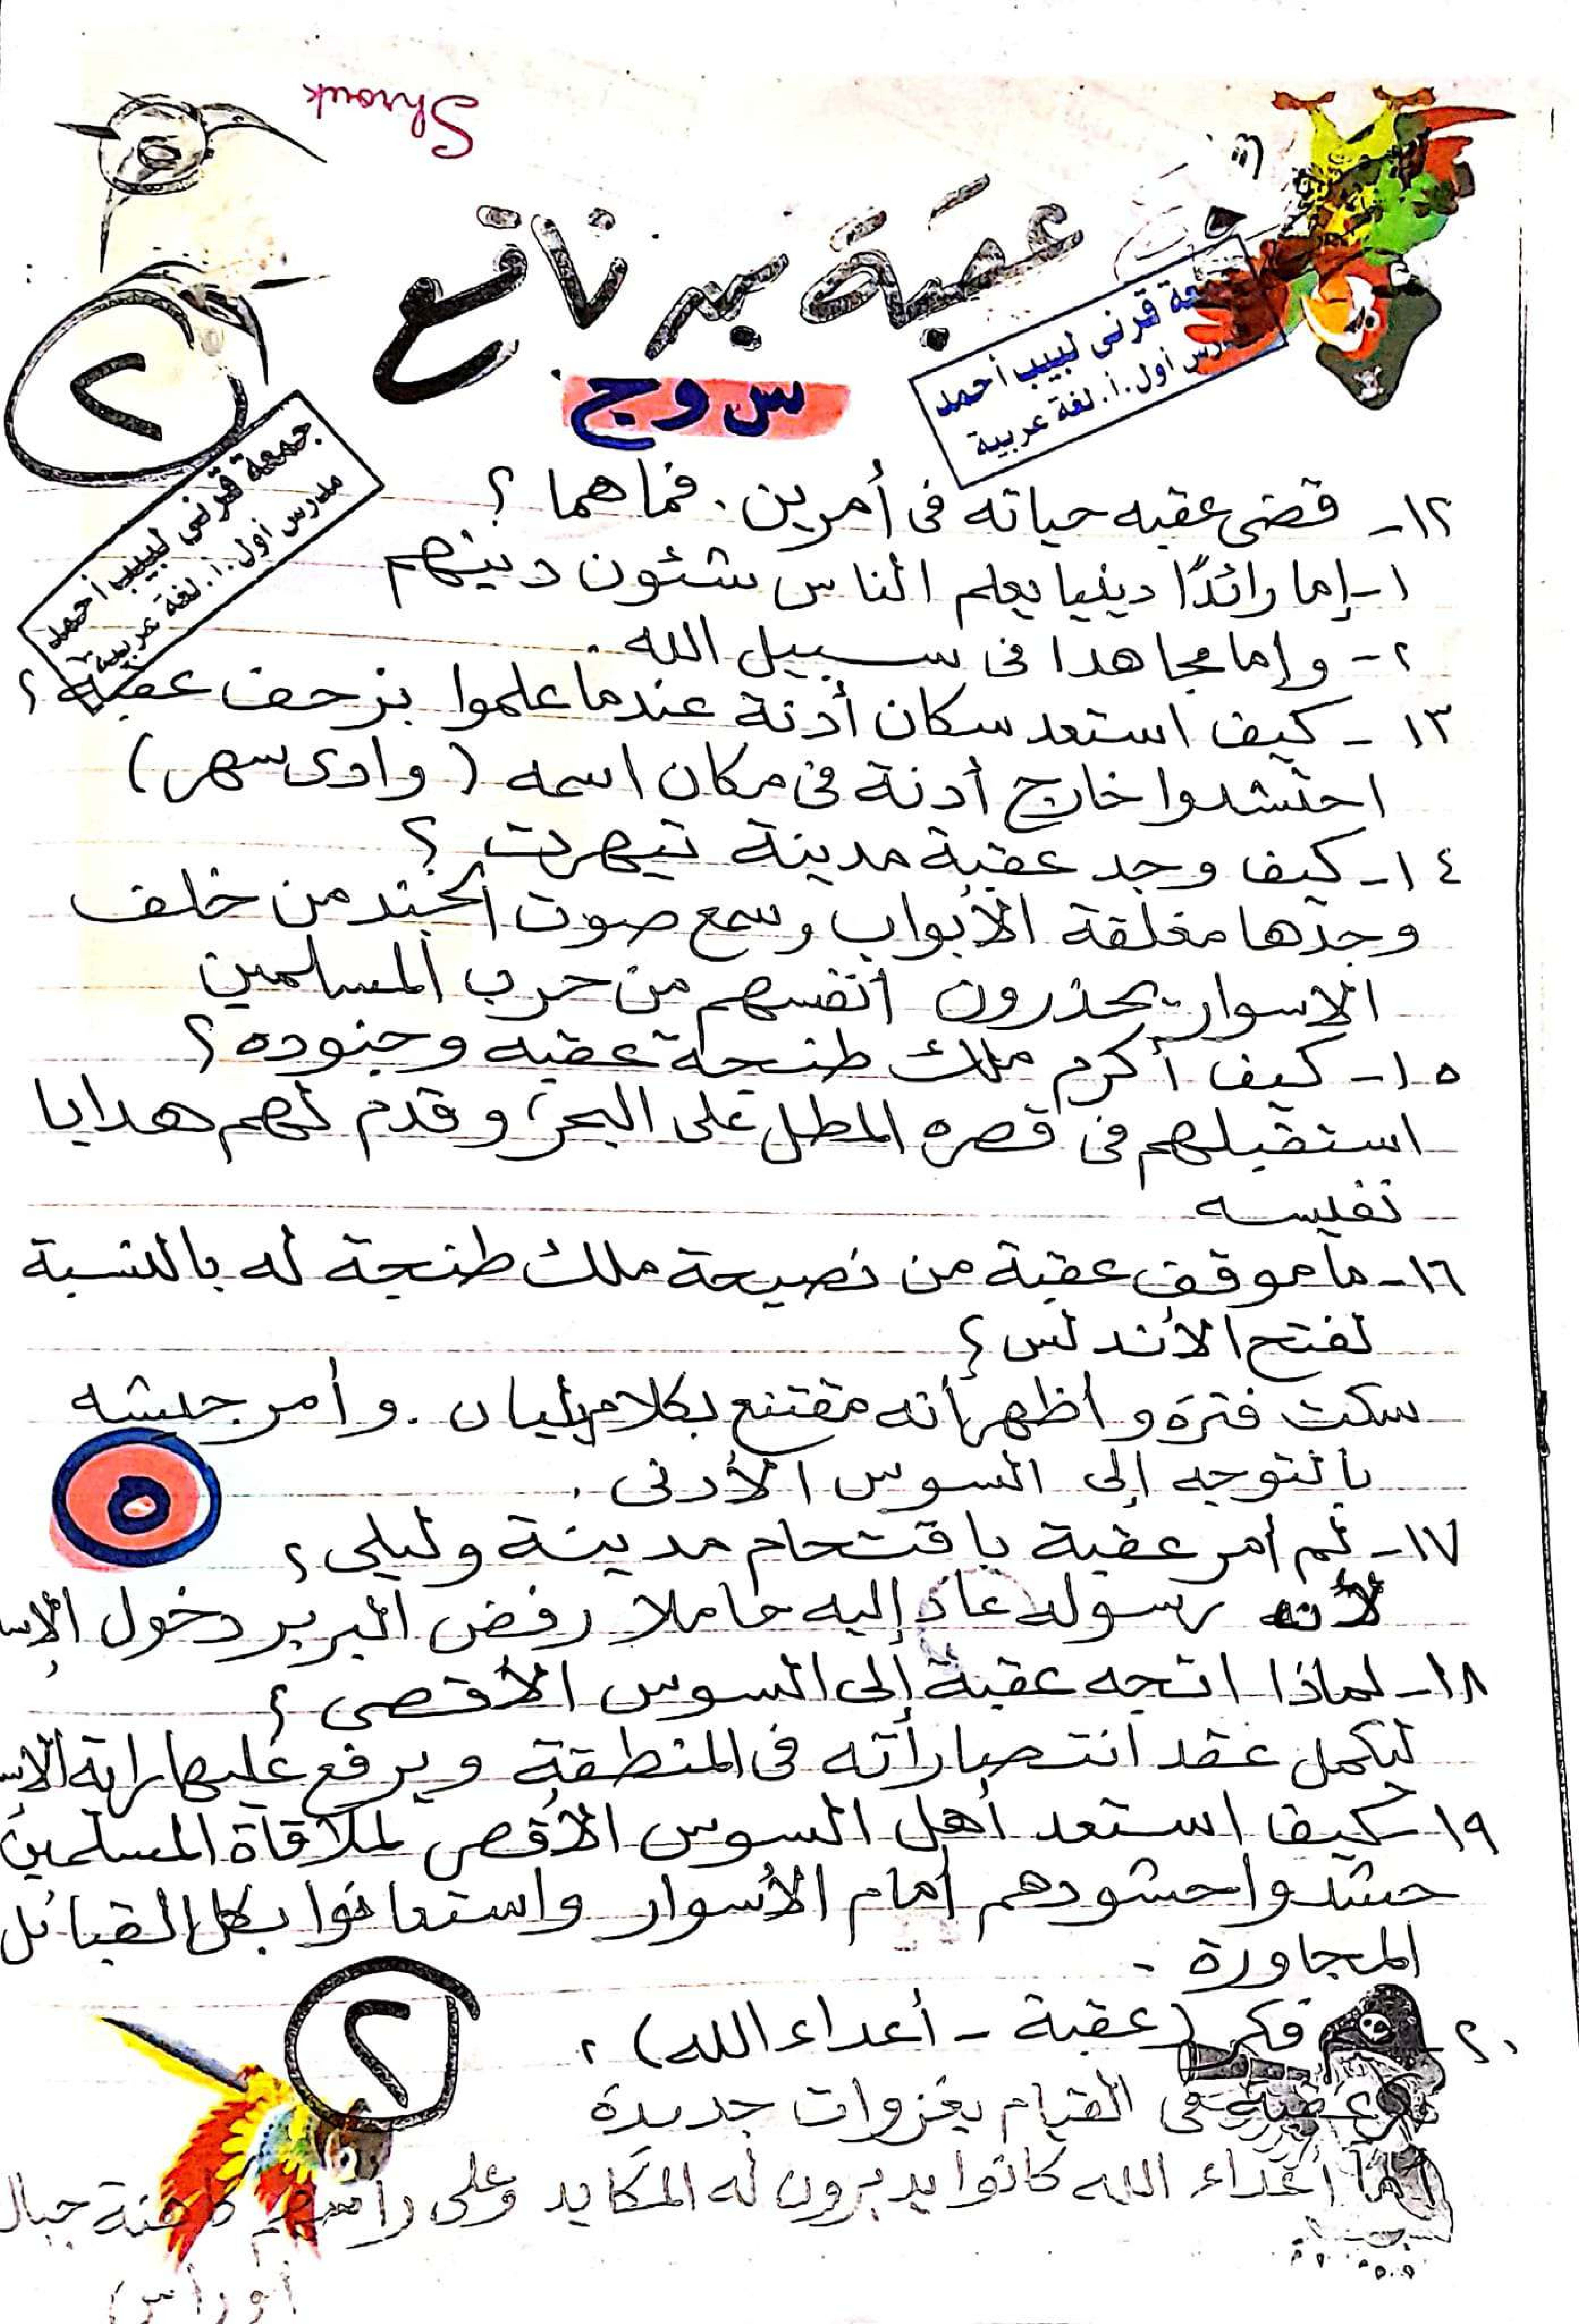 Shrouk
عقبة بن نافع
س وج
٢
جمعة قرنى لبيب أحمد
مدرس أول.أ.لغة عربية
قرنى لبيب أحمد
أول.أ.لغة عربية
١٢- قضى عقبه حياته فى أمرين . فما هما ؟
١- إما رائدًا دينيا يعلم الناس شئون دينهم
٢- وإما مجاهدا فى سبيل الله .
١٣- كيف استعد سكان أدنة عندما علموا بزحف عقبة ؟
احتشدوا خارج أدنة فى مكان اسمه ( وادى سهر )
١٤- كيف وجد عقبة مدينة تيهرت ؟
وجدها مغلقة الأبواب وسمع صوت الجند من خلف
الاسوار يحذرون أنفسهم من حرب المسلمين
١٥- كيف أكرم ملك طنجة عقبه وجنوده ؟
استقبلهم فى قصره المطل على البحر وقدم لهم هدايا
نفيسه
١٦- ما موقف عقبة من نصيحة ملك طنجة له بالنسبة
لفتح الأندلس ؟
سكت فترة وأظهر أنه مقتنع بكلام يليان . وأمر جيشه
بالتوجه إلى السوس الأدنى .
٥
١٧- لم أمر عقبة باقتحام مدينة وليلى ؟
لأنه رسوله عاد إليه حاملا رفض البربر دخول الإس
١٨- لماذا اتجه عقبة إلى السوس الأقصى ؟
ليكمل عقد انتصاراته فى المنطقة ويرفع عليها راية الإس
١٩- كيف استعد أهل السوس الأقصى لملاقاة المسلمين
حشدوا حشودهم أمام الأسوار واستعانوا بكل القبائل
المجاورة .
٢٠- فكر ( عقبة - أعداء الله ) .
عقبة فى القيام بغزوات جديدة
أما أعداء الله كانوا يدبرون له المكايد وعلى رأسهم كاهنة جبال
أوراس )
٢